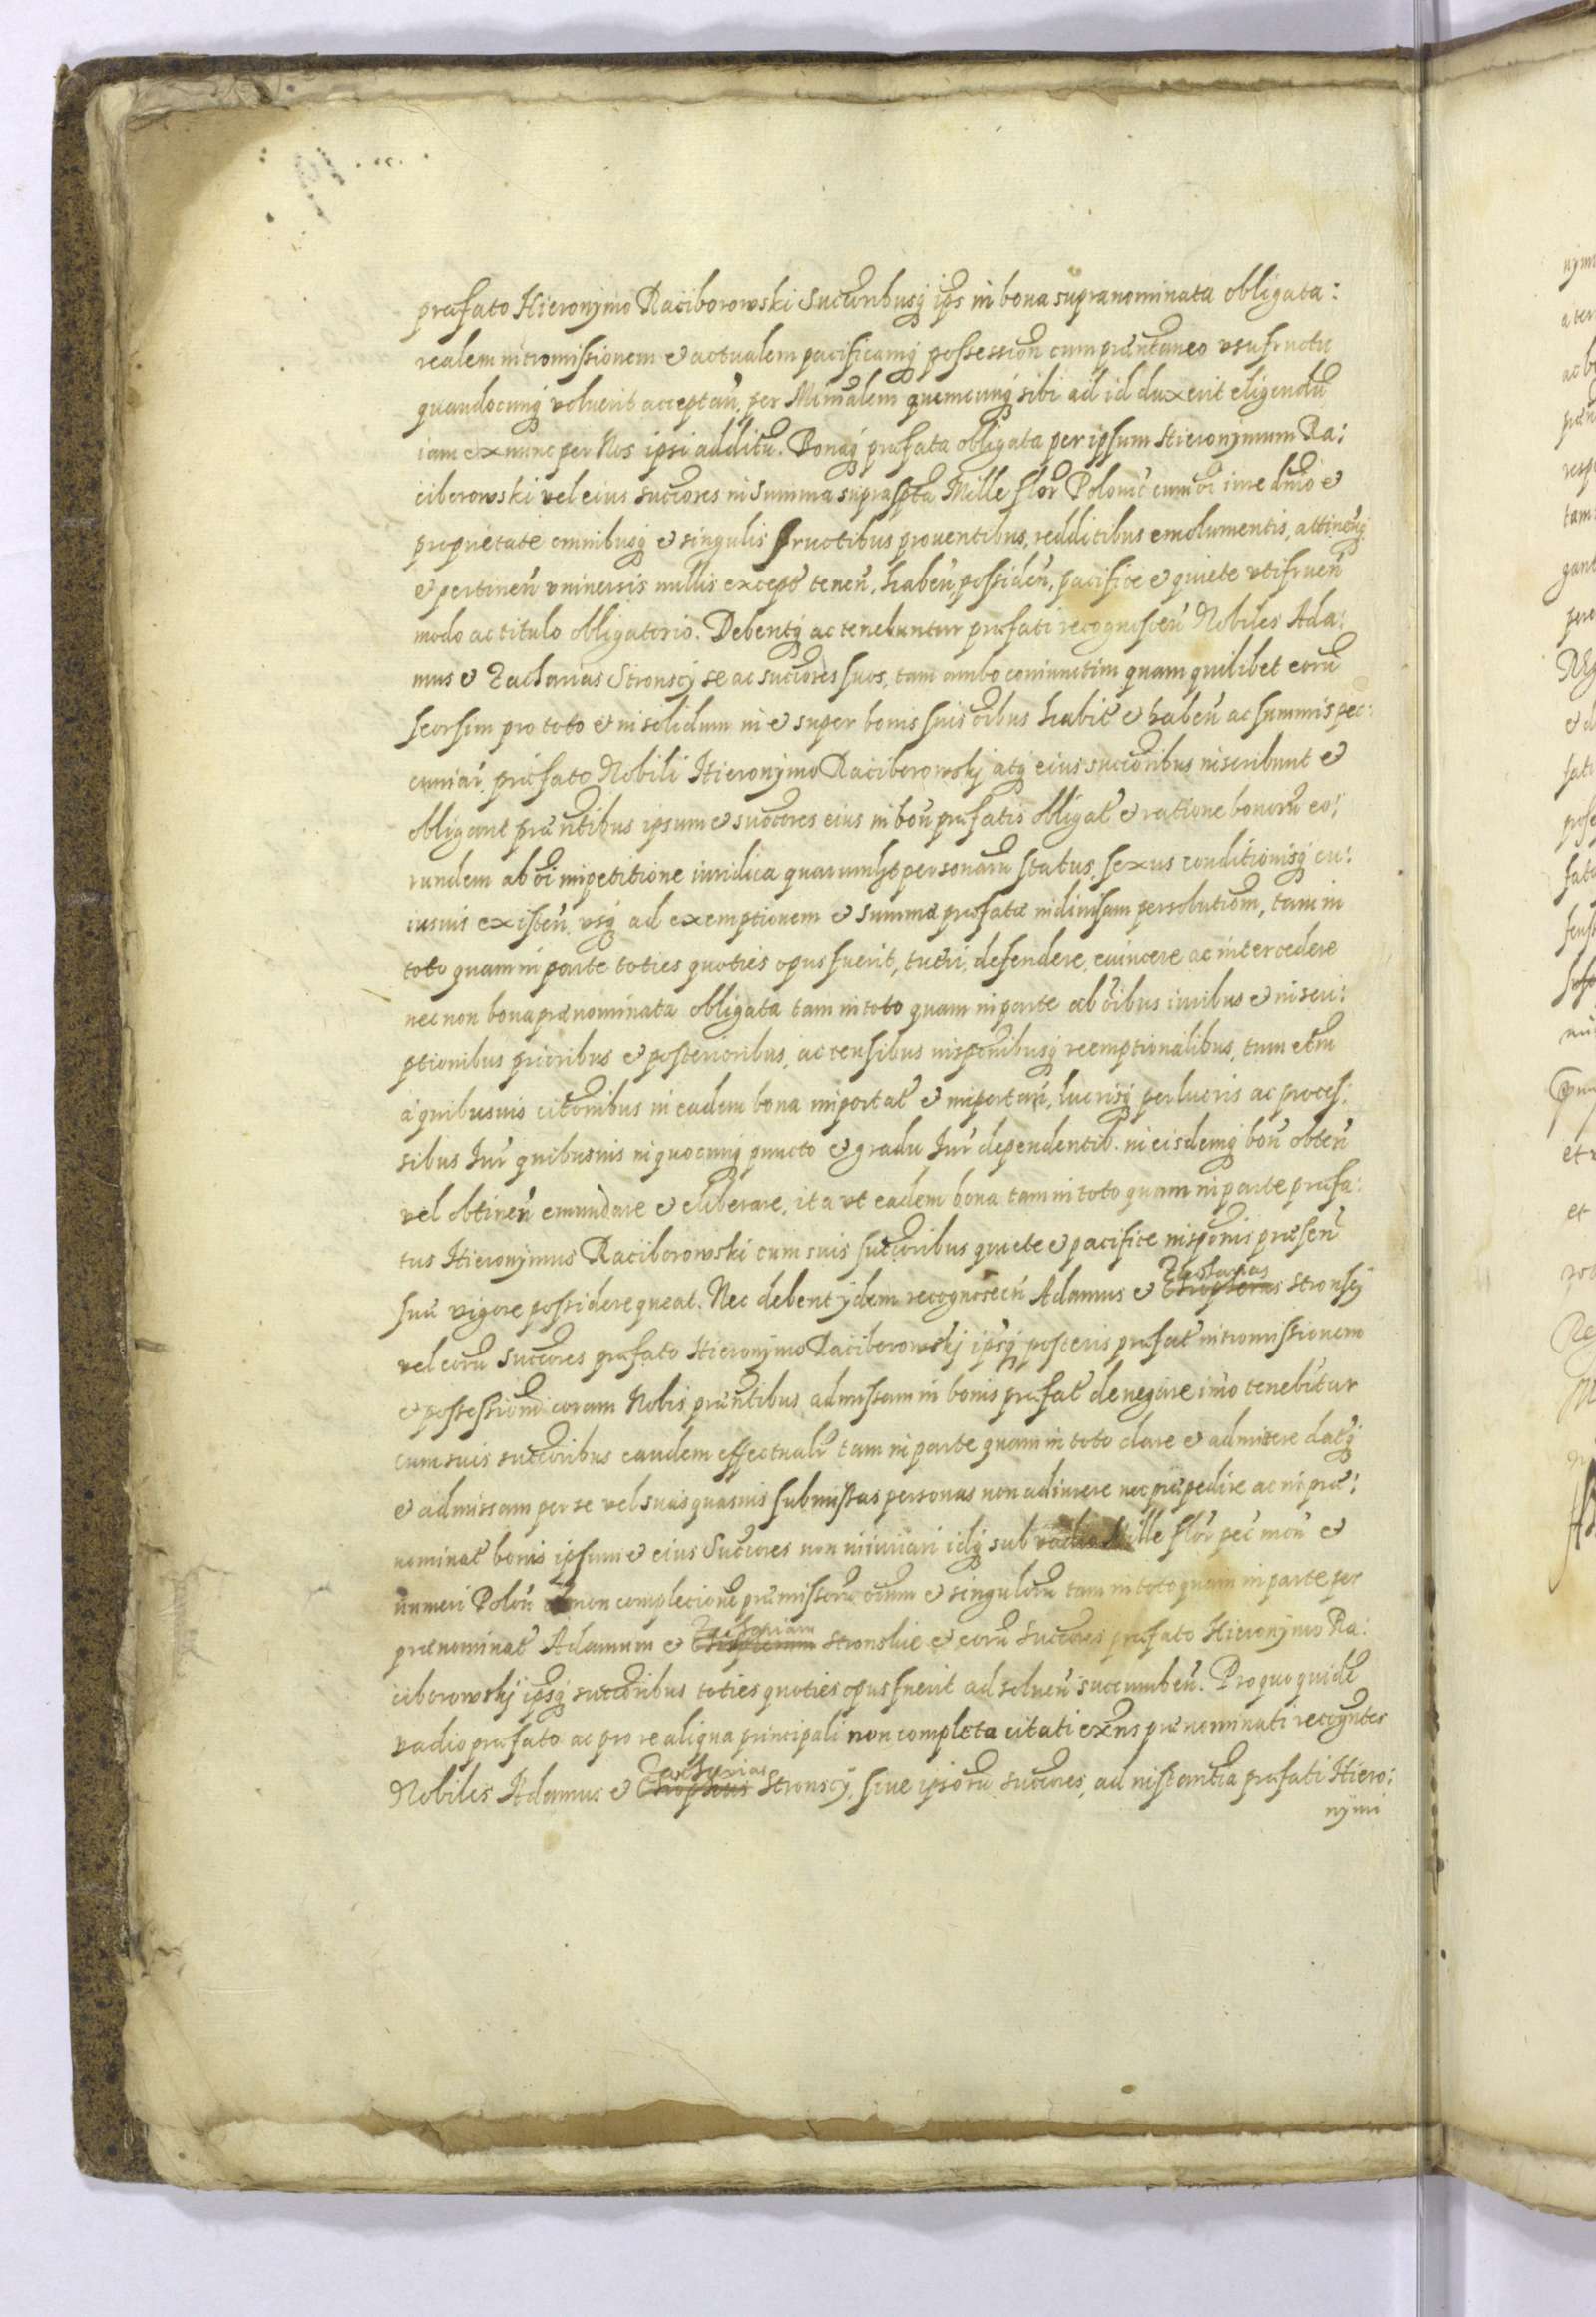 præfato Hieronymo Raciborowski Succoribusq ips in bona supranominata obligata:
realem intromissionem et actualem pacificamq possession cum præntaneo vsufructu
quandocunq voluerit acceptan, per Mimalem quemcunq sibi ad id duxerit eligendū
iam ex nunc per Nos ipsi additū. Bonaq præfata obligata per ipsum Hieronymum Ra:
ciborowski vel eius succores in Summa suprascpta Mille flor Polonic cum oi iure dnio et
proprietate omnibusq et singulis fructibus prouentibus, redditibus emolumentis, attinenq
et pertinen vniuersis nullis except tenen, haben, possiden, pacifice et quiete vtifruen
modo ac titulo obligatorio. Debentq ac tenebuntur præfati recognoscen Nobiles Ada:
mus et Zacharias Stronscy se ac succores suos, tam ambo coniunctim quam quilibet eorū
seorsim pro toto et in solidum in et super bonis suis oibus habit et haben ac summis pec:
cuniar, præfato Nobili Hieronymo Raciborowskj atq eius succoribus inscribunt et
obligant præntibus ipsum et succores eius in bon præfatis obligat et ratione bonorū eo:
rundem ab oi impetitione iuridica quarumlbt personarū status, sexus conditionisq cu:
iusuis existen, vsq ad exemptionem et summæ præfatæ indiuisam persolutiom, tam in
toto quam in parte toties quoties opus fuerit, tueri, defendere, euincere ac intercedere
nec non bona prænominata obligata tam in toto quam in parte ab oibus iuribus et inscri:
ptionibus prioribus et posterioribus, ac censibus insponibusq reemptionalibus, tum etm
a quibusuis citonibus in eadem bona importat et importan, lucrisq perlucris ac proces:
sibus Jur quibusuis in quocunq puncto et gradu Jur dependentib. in eisdemq bon obten
vel obtinen emundare et eliberare, ita vt eadem bona tam in toto quam in parte præfa:
tus Hieronymus Raciborowski cum suis succoribus quiete et pacifice insponis præsen
suu vigore possidere queat. Nec debent ijdem recognoscen Adamus et Zacharias Stronscy
vel eorū succores præfato Hieronymo Raciborowskj ipsq posteris præfat intromissionem
et possessionē coram Nobis præntibus admissam in bonis præfat denegare imo tenebitur
cum suis succoribus eandem effectualr tam in parte quam in toto dare et admittere datq
et admissam per se vel suas quasuis submissas personas non adimere nec præpedire ac in præ:
nominat bonis ipsum et eius Succores non iniuriari idq sub vadio Mille flor pec mon et
numeri Polon non complecione præmissorū oium et singulorū tam in toto quam in parte per
prænominat Adamum et Zachariam stronskie et eorū succores præfato Hieronymo Ra:
ciborowskj ipsq succoribus toties quoties opus fuerit ad soluen succumben. Pro quo quidē
vadio præfato ac pro re aliqua principali non completa citati exns prænominati recogntes
Nobiles Adamus et Zacharias Stronscy, siue ipsorū succores, ad instantia præfati Hiero:
nymi